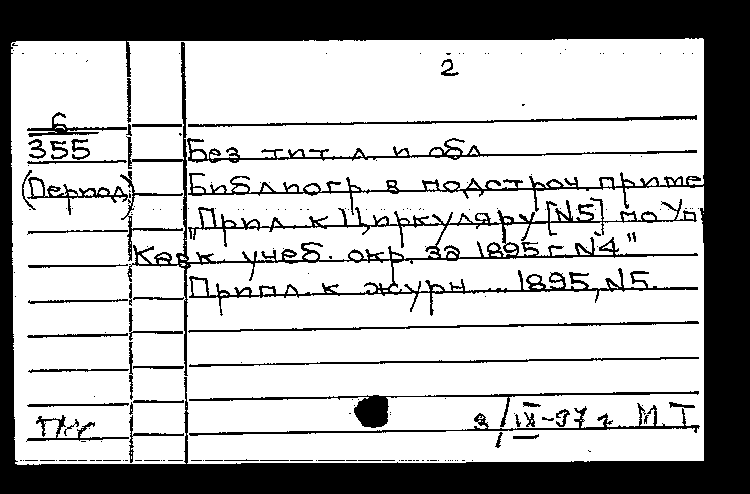 2
6
355
(Период)
Без тит. л. и обл
Библиогр. в подстроч. приме
"Прил. к Циркуляру [N5] по Уп
Кавк. учеб. окр. за 1895 г. N4"
Прил. к журн. ... 1895, N5.
/IX-37 г. М.Т.